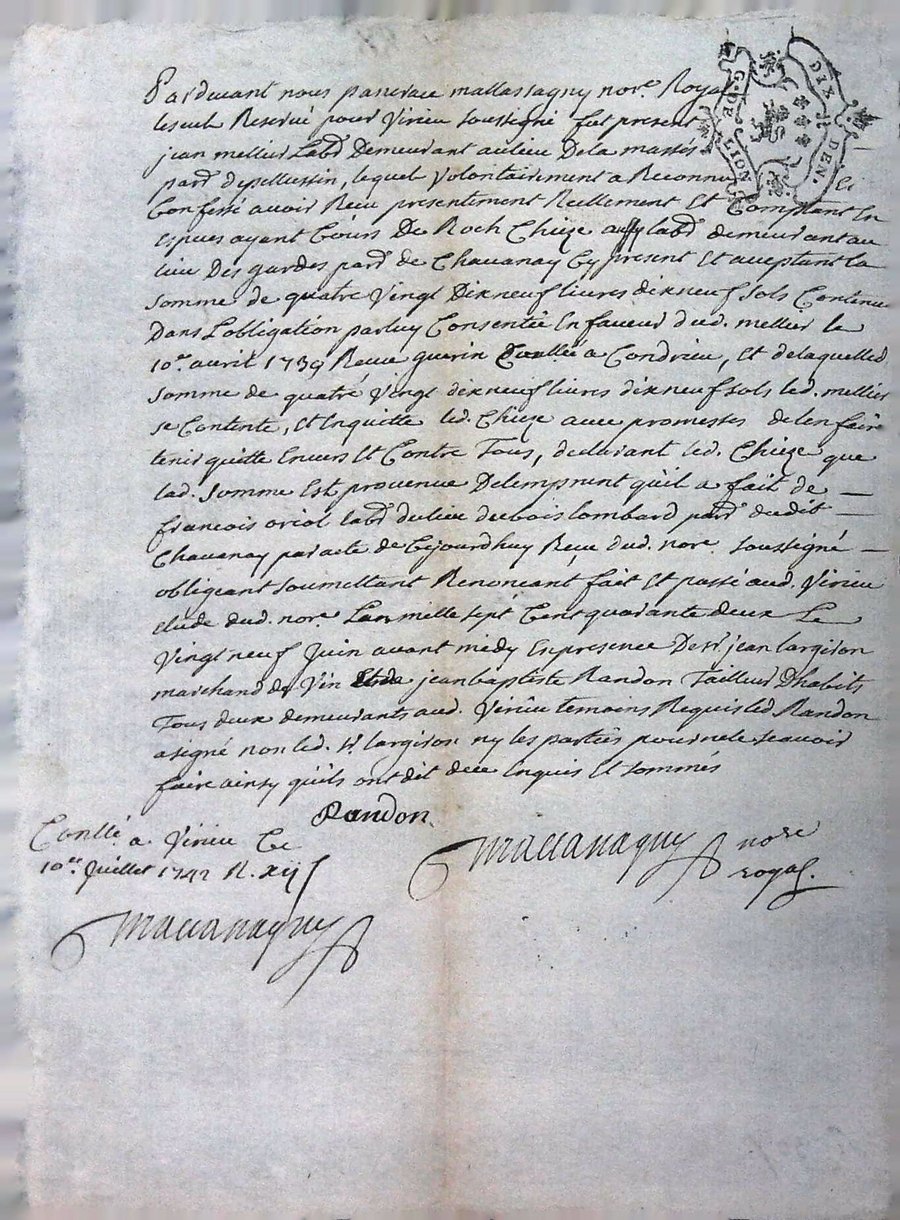 Pardevant nous pancrace mallassagny nore. Royal
lescul Reservé pour Virieu soussigné fut present
jean mellier Labr. Demeurant au lieu De la masses
parr. depellussin, lequel Volontairement a Reconnu Et
Confessé avoir Recu presentement Reellement Et Comptant En
especes ayant Cours De Roch Chieze aussy labr. demeurant au
lieu Des gardes parr. de Chavanay Cy present Et aceptant la
somme de quatre Vingt Dixneuf livres dixneuf sols Contenue
Dans Lobligation par luy Consentie En faveur dud. mellier le
10e. avril 1739 Recue guerin Conllée a Condrieu, et de laquelled.
somme de quatre Vingt dixneuf livres dixneuf sols led. mellier
se Contente, Et Enquitte led. Chieze avec promesses de len faire
tenir quitte Envers Et Contre Tous, declarant led. Chieze que
lad. somme Est provenue Delemprunt qu'il a fait de
francois oriol labr. du lieu du bois lombard parr. dudit
Chavanay par acte de Cejourdhuy Reçu dud. nore. soussigné
obligeant soumettant Renoncant fait Et passé aud. Virieu
etude dud. nore. Lan mille sept Cent quarante deux Le
Vingt neuf Juin avant midy En presence De sr. jean largison
marchand de Vin jean baptiste Randon Tailleur Dhabits
Tous deux demeurants aud. Virieu temoins Requis led. Randon
a signé non led. sr. largison ny les parties pour ne le scavoir
faire ainsy qu'ils ont dit de ce Enquis Et sommés
Randon
Conllé a Virieu Ce
10e. Juillet 1742 R. xij s
maccanaguy nore
royal.
maccanaguy
G. DE LION
DIX DEN.